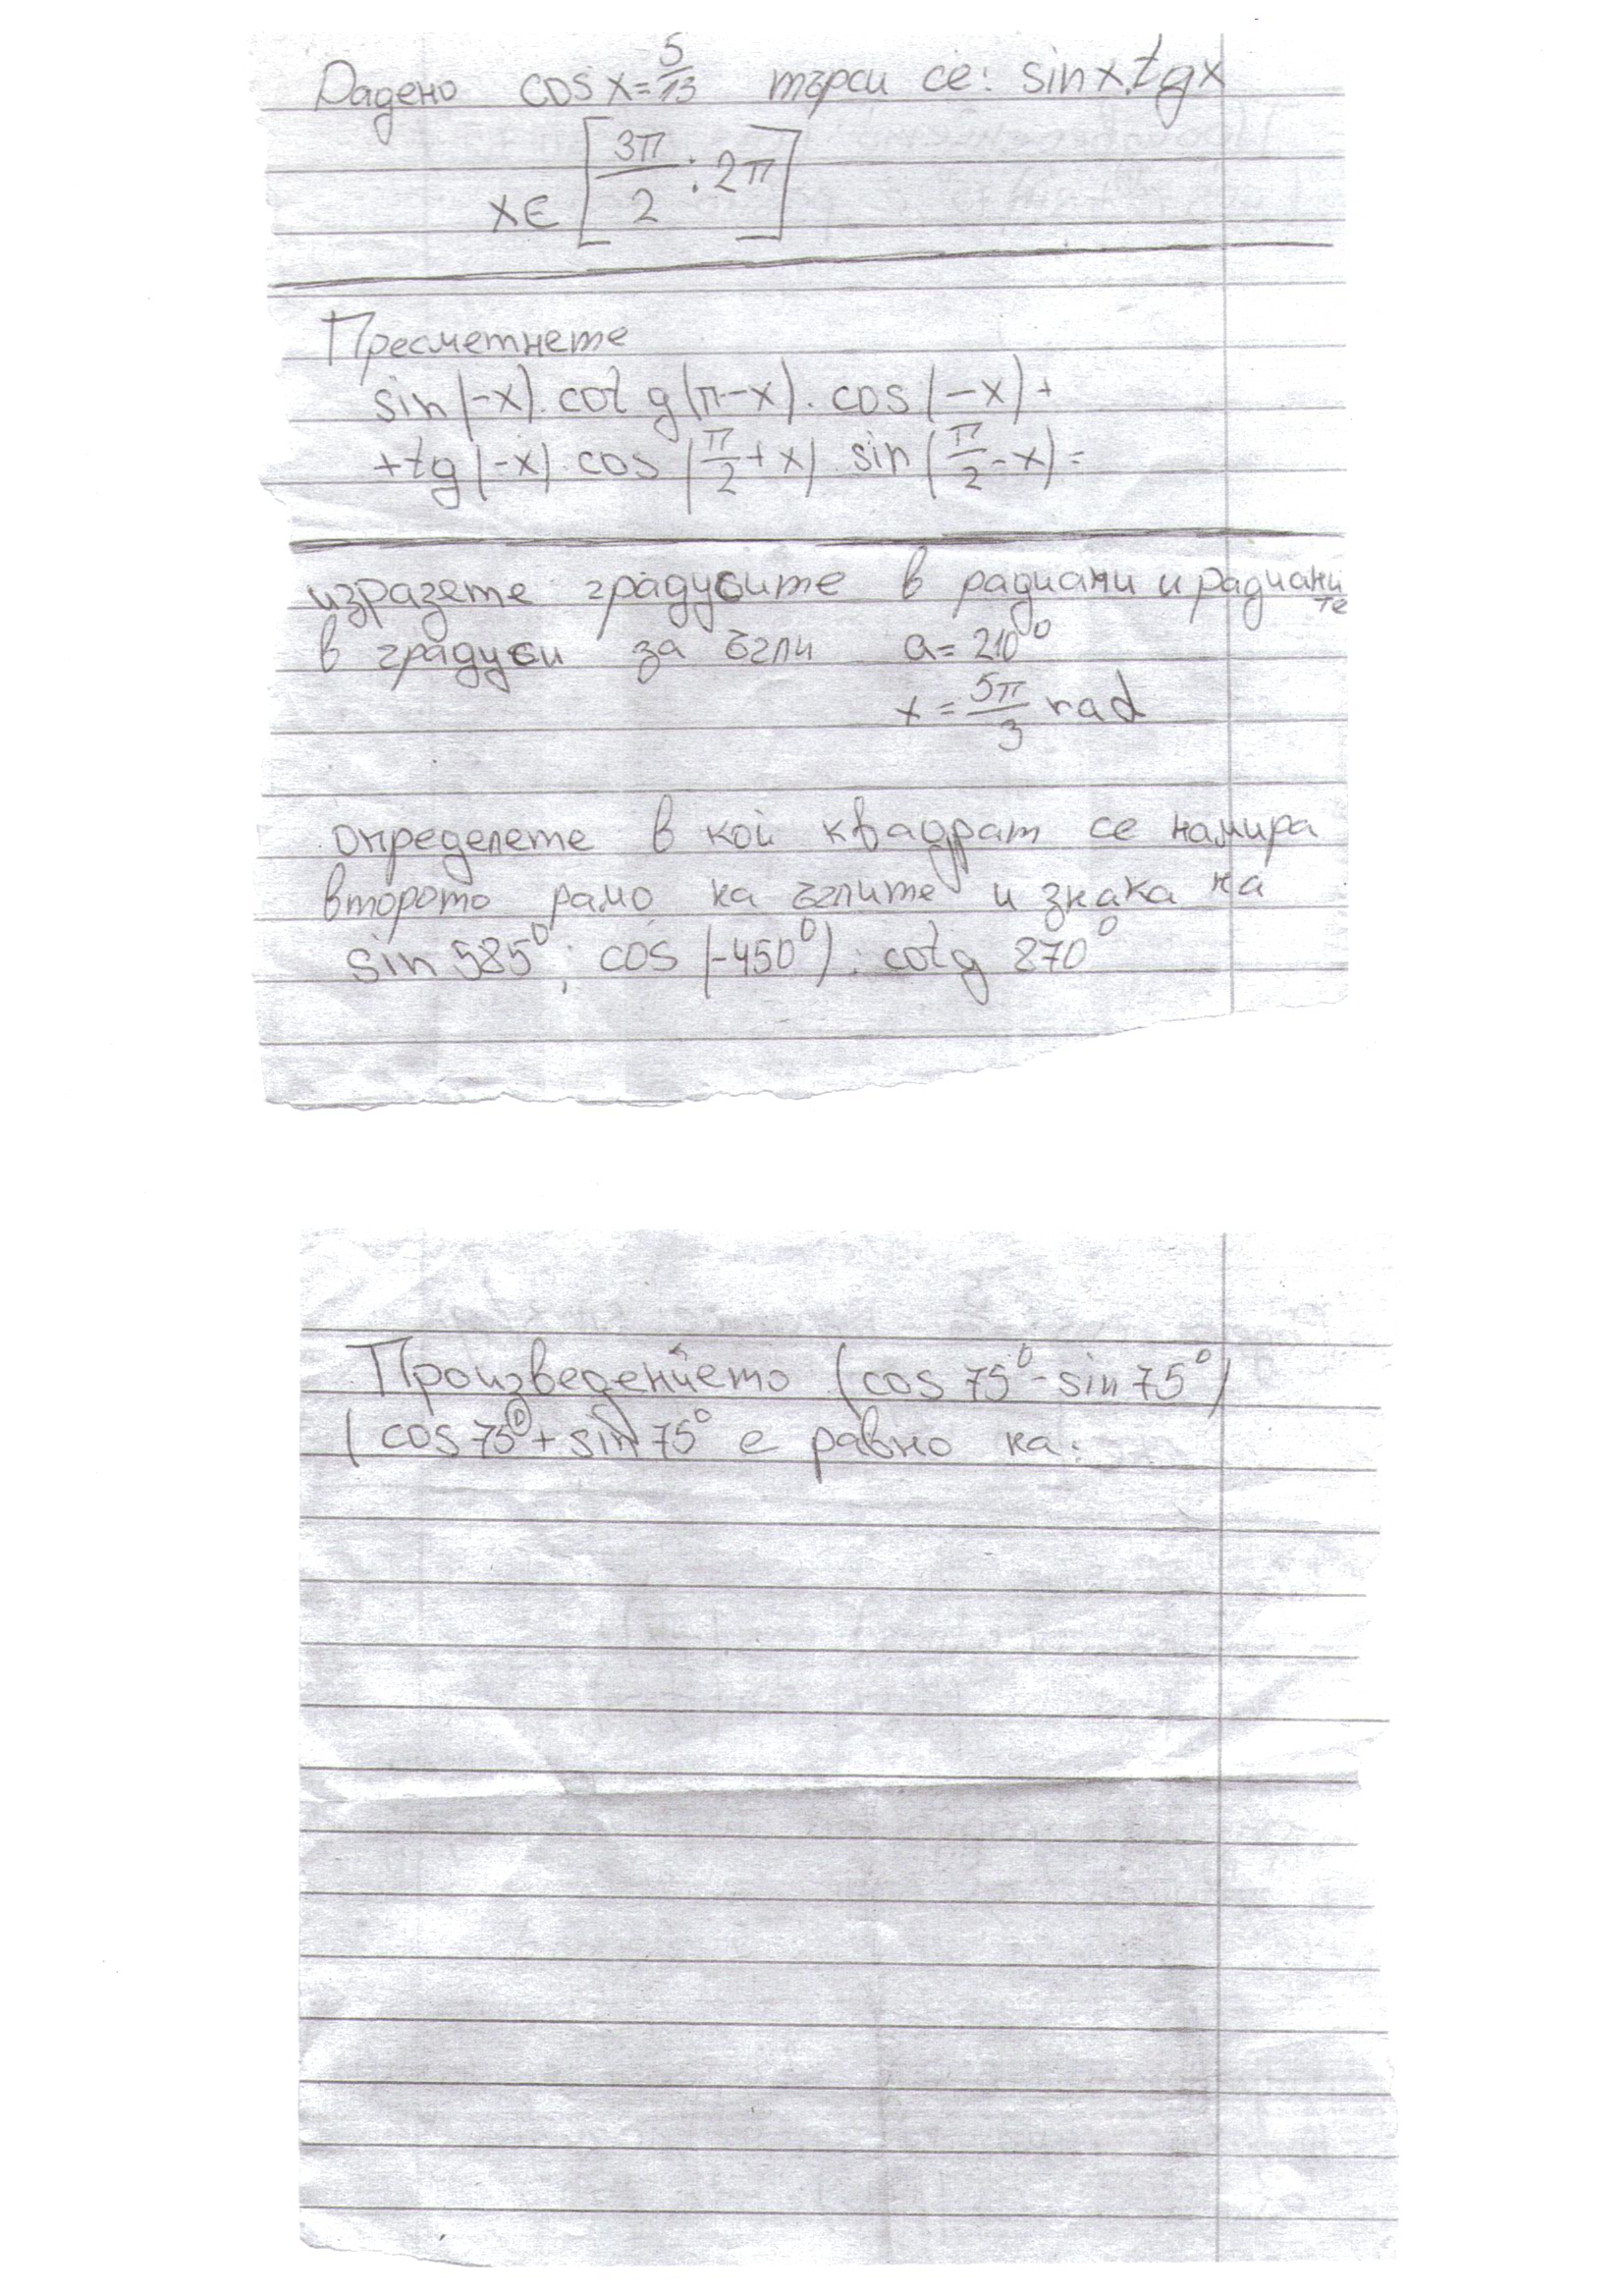 Дадено cos x = 5/13 търси се: sin x, tg x
x ∈ [3π/2 ; 2π]
Пресметнете
sin(-x). cotg(π-x). cos(-x)+
+tg(-x). cos(π/2+x). sin(π/2-x)=
изразете градусите в радиани и радианите
в градуси за ъгли a= 210°
x = 5π/3 rad
определете в кой квадрат се намира
второто рамо на ъглите и знака на
sin 585° ; cos (-450°) ; cotg 870°
Произведението (cos 75° - sin 75°)
(cos 75° + sin 75° е равно на: